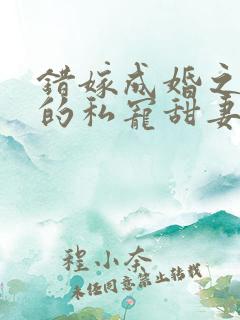 错嫁成婚之
的私宠甜妻
程小奈
未经同意禁止转载